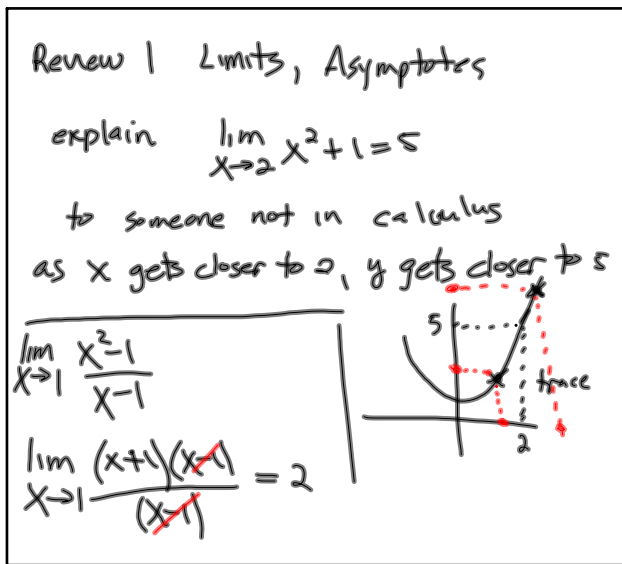 Review 1 Limits, Asymptotes
explain lim x→2 x²+1=5
to someone not in calculus
as x gets closer to 2, y gets closer to 5
lim x→1 (x²-1)/(x-1)
lim x→1 (x+1)(x-1)/(x-1) = 2
5
trace
2